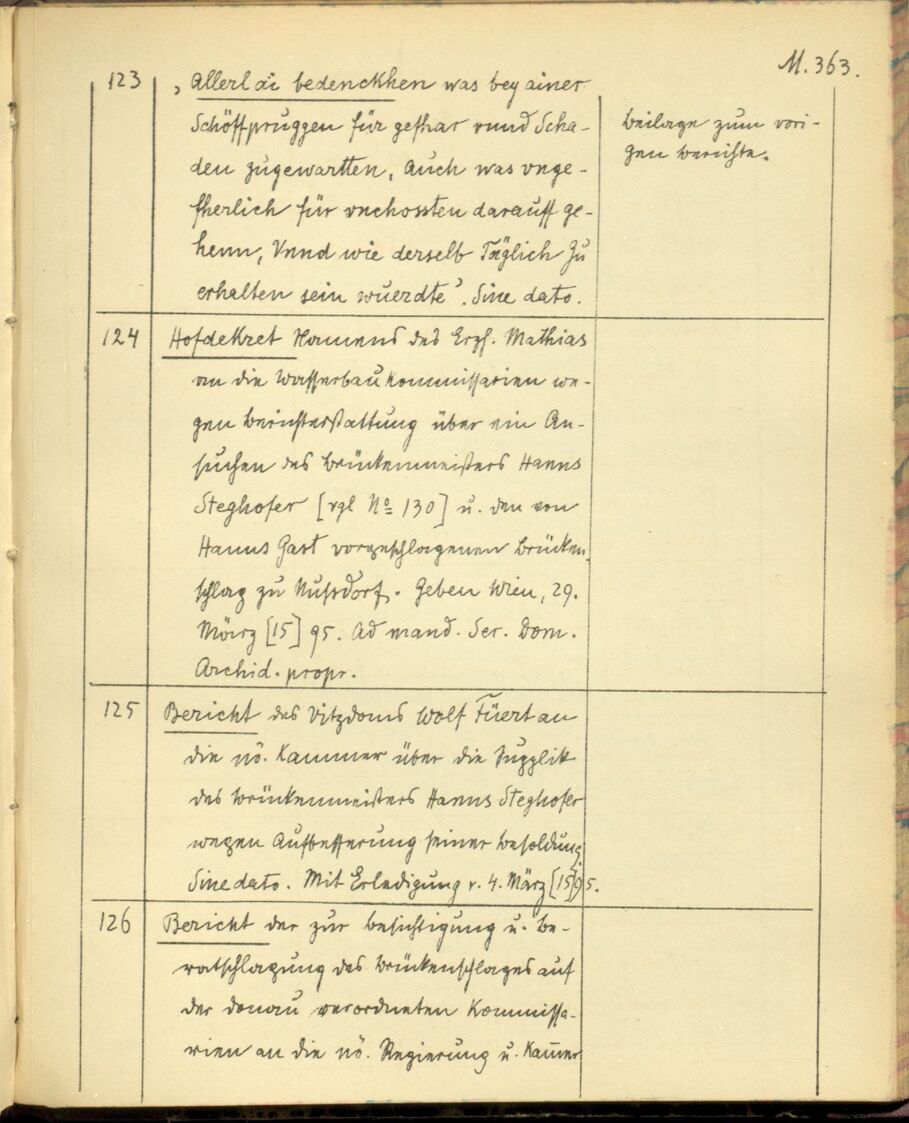 M. 363.
123 ‚Allerlai bedenckhen was bey ainer
Schöffpruggen für gefhar vnnd Scha-
den zugewartten, Auch was vnge-
fherlich für vnchossten darauff ge-
henn, Vnnd wie derselb Täglich Zu
erhalten sein wuerdte‘. Sine dato.
Beilage zum vori-
gen Berichte.
124 Hofdekret Namens des Erzh. Mathias
an die Wasserbaukommissarien we-
gen Berichterstattung über ein An-
suchen des Brückenmeisters Hanns
Steghofer [vgl No 130] u. den von
Hanns Gast vorgeschlagenen Brücken
schlag zu Nussdorf. Geben Wien, 29.
März [15]95. Ad mand. Ser. Dom.
Archid. propr.
125 Bericht des Vitzdoms Wolf Füert an
die nö. Kammer über die Supplik
des Brückenmeisters Hanns Steghofer
wegen Aufbesserung seiner Besoldung.
Sine dato. Mit Erledigung v. 4. März [15]95.
126 Bericht der zur Besichtigung u. Be-
ratschlagung des Brückenschlages auf
der Donau verordneten Kommissa-
rien an die nö. Regierung u. Kam̅er